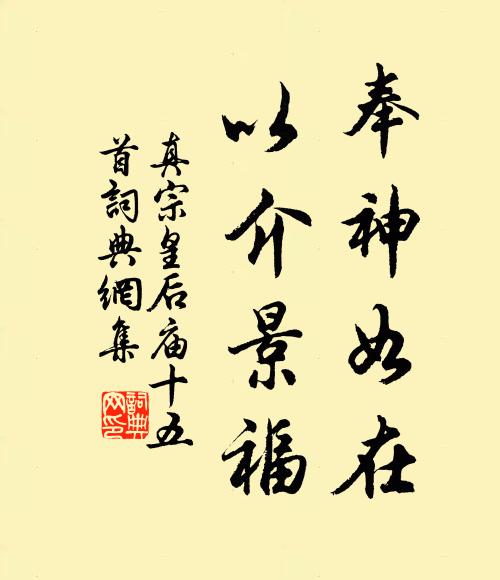 奉神如在
以介景福
真宗皇后庙十五
首詞典網集
詞典
网印